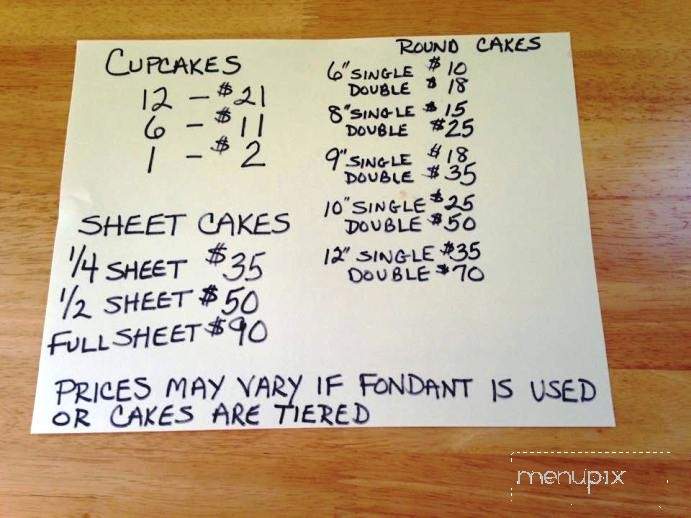 CUPCAKES
12 - $21
6 - $11
1 - $2
SHEET CAKES
1/4 SHEET $35
1/2 SHEET $50
FULL SHEET $90
ROUND CAKES
6" SINGLE $10
DOUBLE $18
8" SINGLE $15
DOUBLE $25
9" SINGLE $18
DOUBLE $35
10" SINGLE $25
DOUBLE $50
12" SINGLE $35
DOUBLE $70
PRICES MAY VARY IF FONDANT IS USED
OR CAKES ARE TIERED
menupix